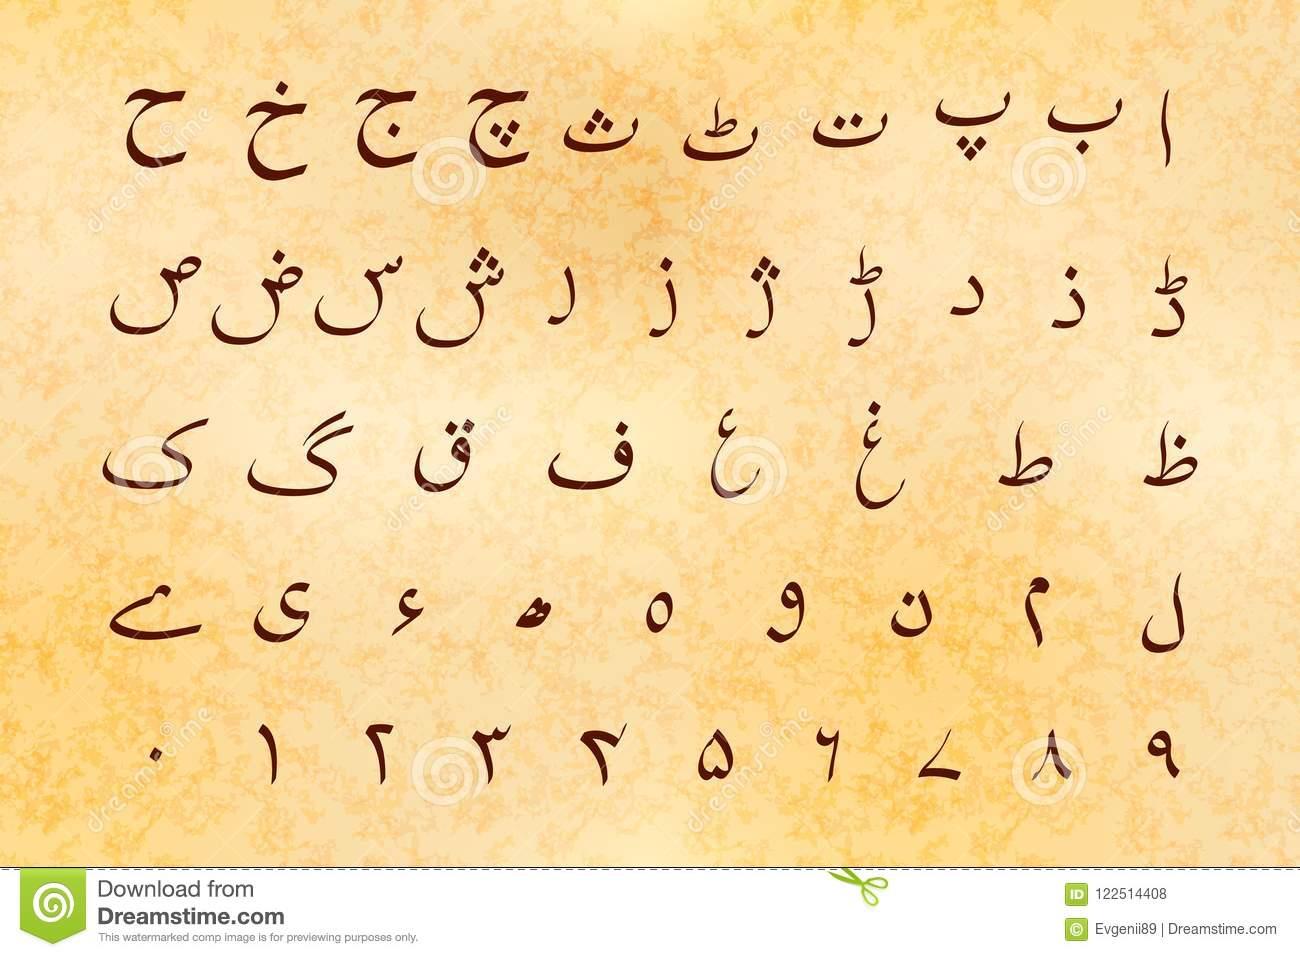 ا ب پ ت ٹ ث چ ج خ ح
ڈ ذ د ڑ ژ ز ر ش س ض ص
ظ ط غ ع ف ق گ ک
ل م ن و ہ ھ ء ی ے
۰ ۱ ۲ ۳ ۴ ۵ ۶ ۷ ۸ ۹
Download from
Dreamstime.com
This watermarked comp image is for previewing purposes only.
ID 122514408
© Evgenii89 | Dreamstime.com